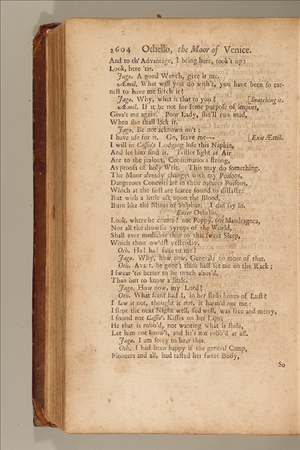 2604 Othello, the Moor of Venice.
And to th' Advantage, I being here, took't up:
Look, here 'tis.
Jago. A good Wench, give it me.
Æmil. What will you do with't, you have been so ear-
nest to have me filch it?
Jago. Why, what is that to you? [Snatching it.
Æmil. If it be not for some purpose of import,
Give't me again. Poor Lady, she'll run mad,
When she shall lack it.
Jago. Be not acknown on't:
I have use for it. Go, leave me— [Exit Æmil.
I will in Cassio's Lodging lose this Napkin,
And let him find it. Trifles light as Air
Are to the jealous, Confirmations strong,
As proofs of holy Writ. This may do something.
The Moor already changes with my Poison,
Dangerous Conceits are in their natures Poisons,
Which at the first are scarce found to distaste:
But with a little act upon the Blood,
Burn like the Mines of Sulphur. I did say so.
Enter Othello.
Look, where he comes! not Poppy, nor Mandragora,
Nor all the drowsie Syrups of the World,
Shall ever medicine thee to that sweet Sleep,
Which thou ow'dst yesterday.
Oth. Ha! ha! false to me!
Jago. Why, how now, General? no more of that.
Oth. Avant, be gone; thou hast set me on the Rack;
I swear 'tis better to be much abus'd,
Than but to know't a little.
Jago. How now, my Lord?
Oth. What sense had I, in her stoln hours of Lust?
I saw it not, thought it not, it harm'd not me:
I slept the next Night well, fed well, was free and merry,
I found not Cassio's Kisses on her Lips;
He that is robb'd, not wanting what is stoln,
Let him not know't, and he's not robb'd at all.
Jago. I am sorry to hear this.
Oth. I had been happy if the general Camp,
Pioneers and all, had tasted her sweet Body,
So